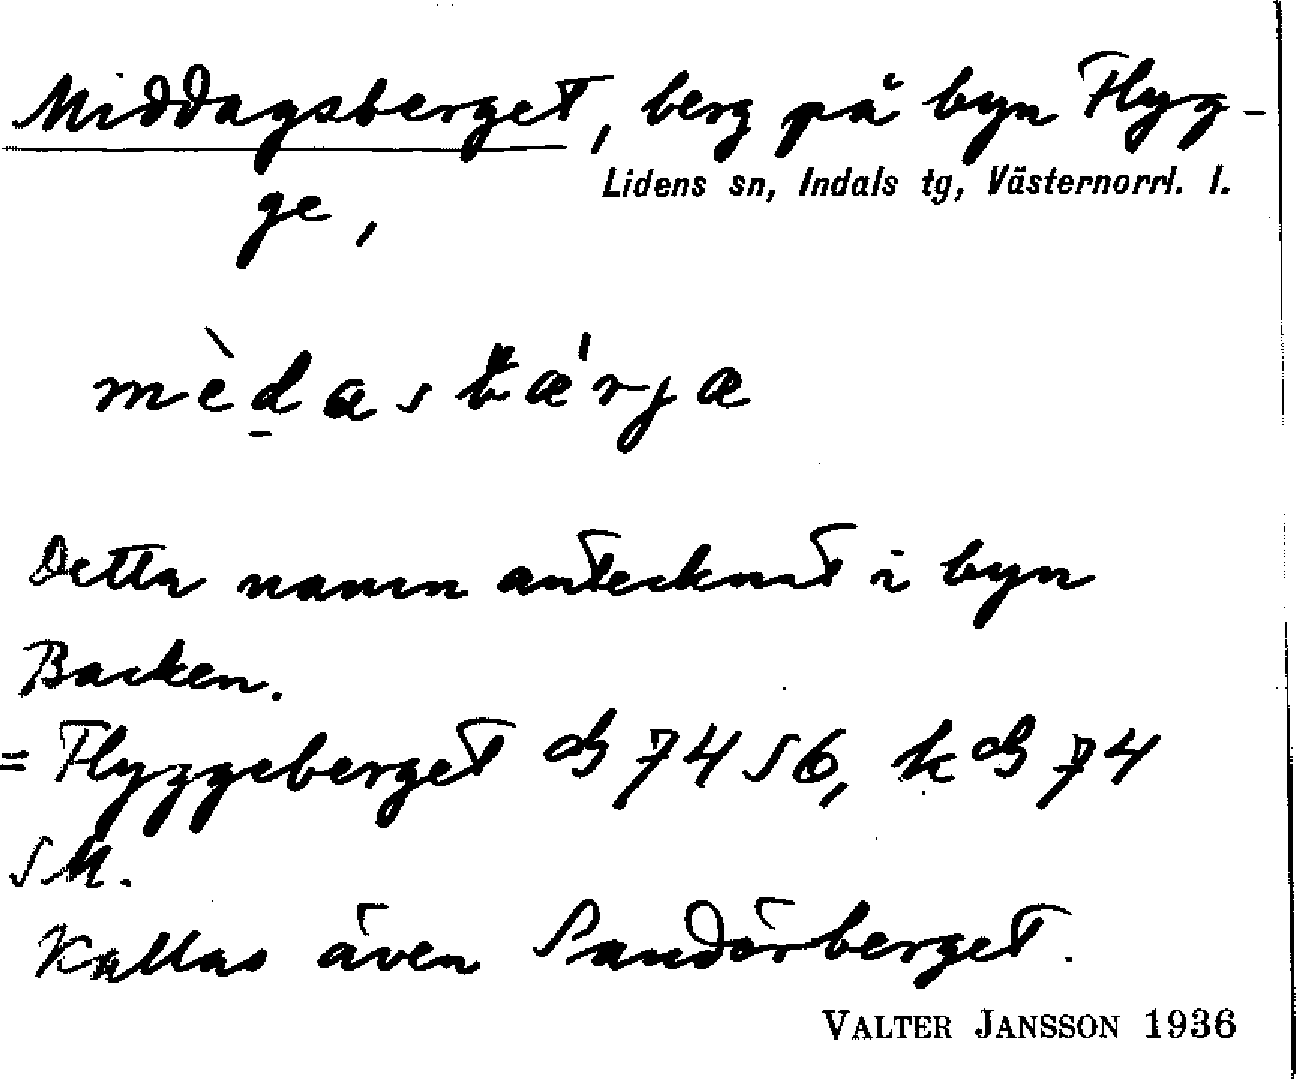 Middagsberget, berg på byn Flyg-
Lidens sn, Indals tg, Västernorrl. l.
ge,
mèdasbærjæ
Detta namn antecknat i byn
Backen.
= Flyggeberget db 74 S6, k db 74
SM.
Kallas även Sandörberget.
VALTER JANSSON 1936